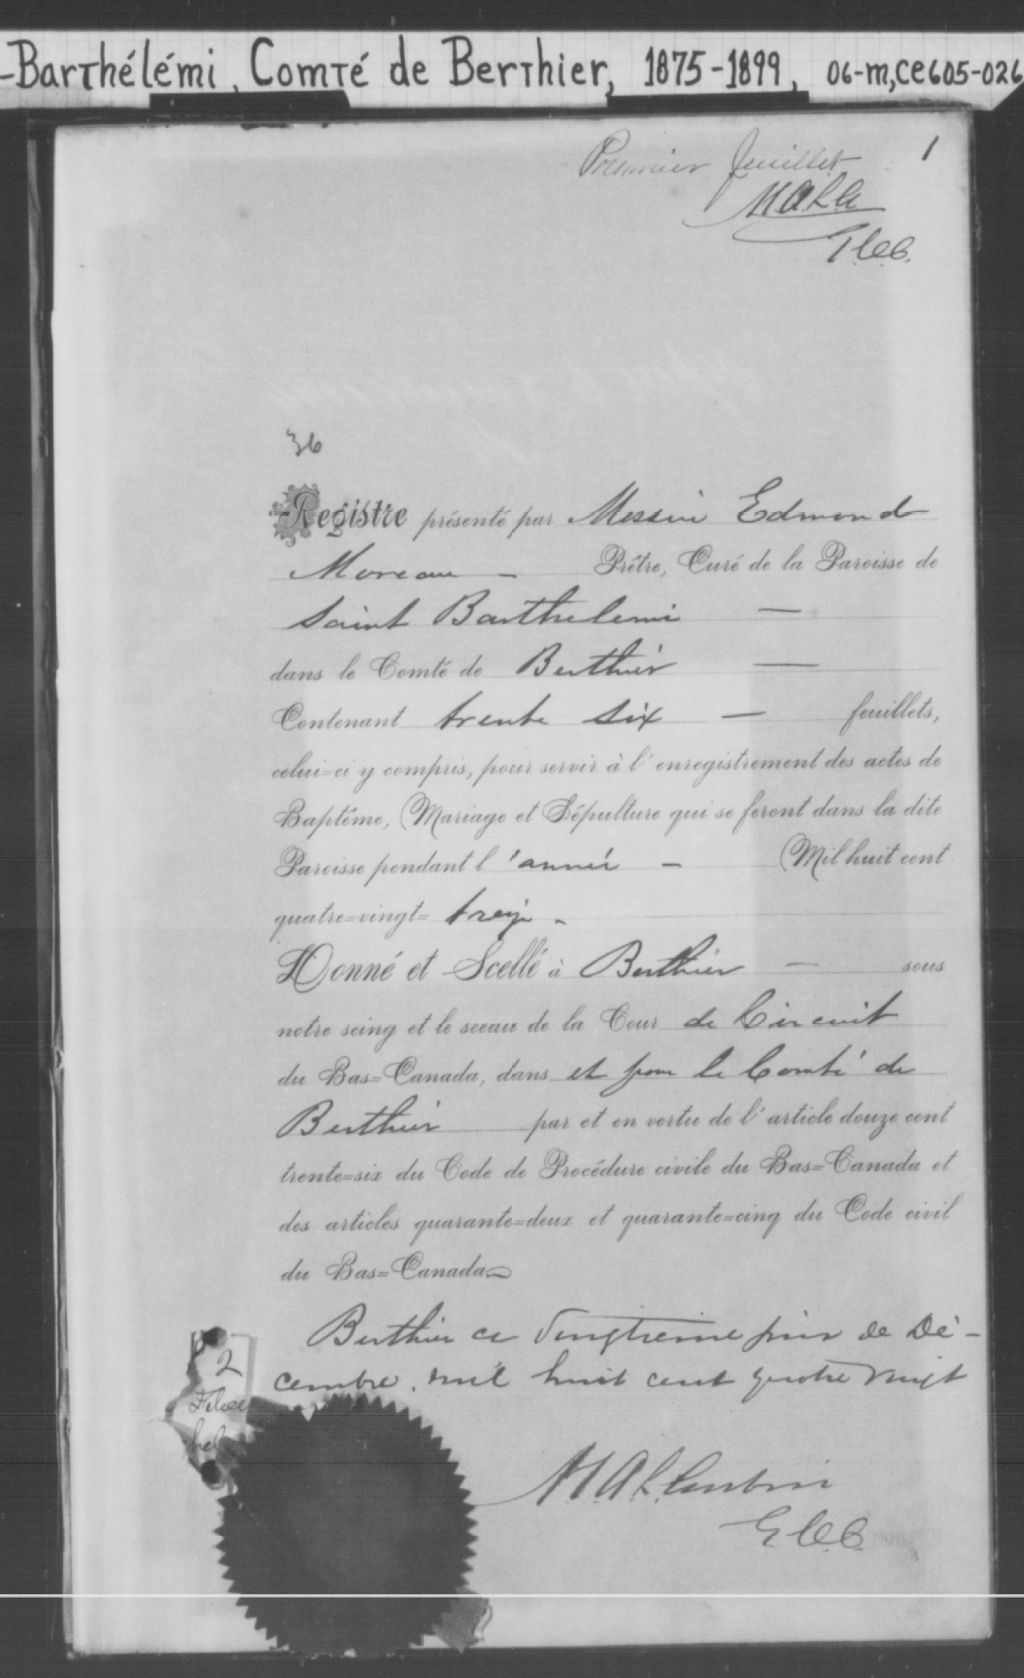 -Barthélémi, Comté de Berthier, 1875-1899, 06-m,CE605-026
Premier feuillet
1
M A L C
G.C.C.
36
Registre présenté par Messire Edmond
Moreau - Prêtre, Curé de la Paroisse de
Saint Barthelemi —
dans le Comté de Berthier —
Contenant trente six — feuillets,
celui=ci y compris, pour servir à l'enregistrement des actes de
Baptême, Mariage et Sépulture qui se feront dans la dite
Paroisse pendant l'année - Mil huit cent
quatre=vingt= treize -
Donné et Scellé à Berthier — sous
notre seing et le sceau de la Cour de Circuit
du Bas=Canada, dans et pour le Comté de
Berthier par et en vertu de l'article douze cent
trente=six du Code de Procédure civile du Bas=Canada et
des articles quarante=deux et quarante=cinq du Code civil
du Bas=Canada
Berthier ce vingtième jour de Dé-
cembre, mil huit cent quatre vingt
2
G.C.C.